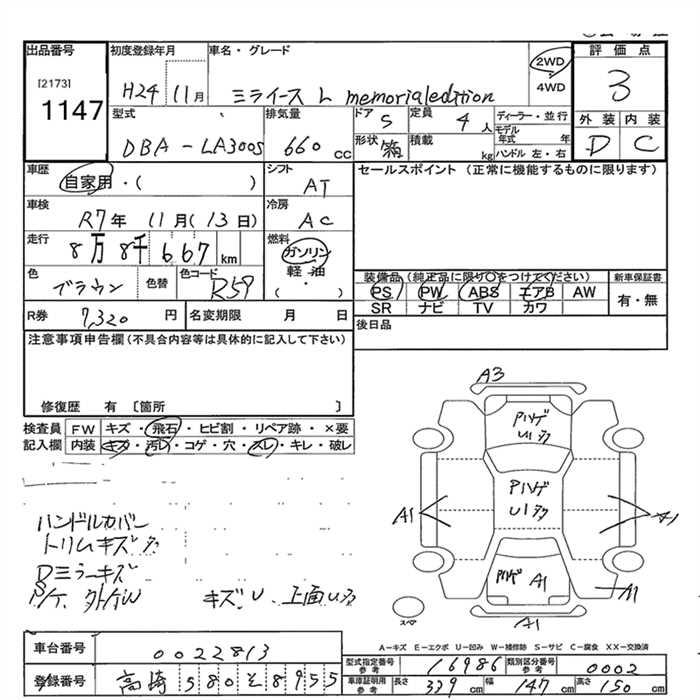 出品番号
[2173]
1147
初度登録年月
H24 11月
車名・グレード
ミライース L memorialedition
2WD
4WD
評価点
3
外装 内装
D C
型式
DBA-LA300S
排気量
660 CC
ドア
5
定員
4人
ディーラー・並行
モデル年式 年
ハンドル 左・右
形状
箱
積載
kg
車歴
自家用・( )
シフト
AT
セールスポイント (正常に機能するものに限ります)
車検
R7年 11月(13日)
冷房
AC
走行
8万8千667km
燃料
ガソリン
軽油
・
( )
色
ブラウン
色替
色コード
R59
装備品(純正品に限り○をつけてください)
PS PW ABS エアB AW
SR ナビ TV カワ
新車保証書
有・無
R券 7,320円
名変期限 月 日
後日品
注意事項申告欄(不具合内容等は具体的に記入して下さい)
修復歴 有 〔箇所 〕
検査員 FW キズ・飛石・ヒビ割・リペア跡・×要
記入欄 内装 キズ・汚レ・コゲ・穴・スレ・キレ・破レ
A3
Pハゲ
U1多
Pハゲ
U1多
A1
Pハゲ A1
A1
A1
スペア
ハンドルカバー
トリムキズ多
Dミラーキズ
キズU 上面U多
A-キズ E-エクボ U-凹み W-補修跡 S-サビ C-腐食 XX-交換済
車台番号 0022813
登録番号 高崎 580 そ 8955
型式指定番号 参考 16986
類別区分番号 参考 0002
車庫証明用 参考 長さ 339cm 幅 147cm 高さ 150cm